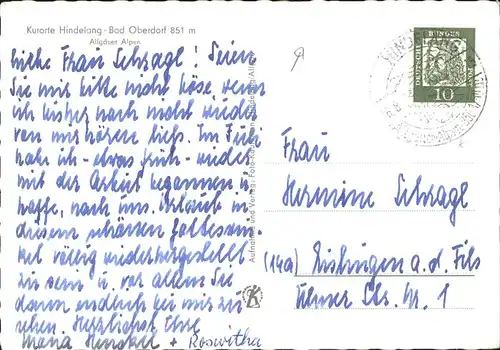 Kurorte Hindelang - Bad Oberdorf 851 m
Allgäuer Alpen
Liebe Frau Schragl! Seien
Sie mir bitte nicht böse, wenn
ich bisher noch nicht wieder
von mir hören ließ. Im Juli
habe ich - etwas früh - wieder
mit der Arbeit begonnen u.
hoffe, nach uns. Urlaub in
diesem schönen
völlig wiederhergestellt
zu sein u. vor allem Sie
dann endlich bei mir zu
sehen. Herzlichst Ihre
Maria + Roswitha
Aufnahme und Verlag: Foto
DEUTSCHE BUNDESPOST
10
HINDELANG
Frau
Hermine Schragl
(14a) Eislingen a. d. Fils
Ulmer Str. Nr. 1